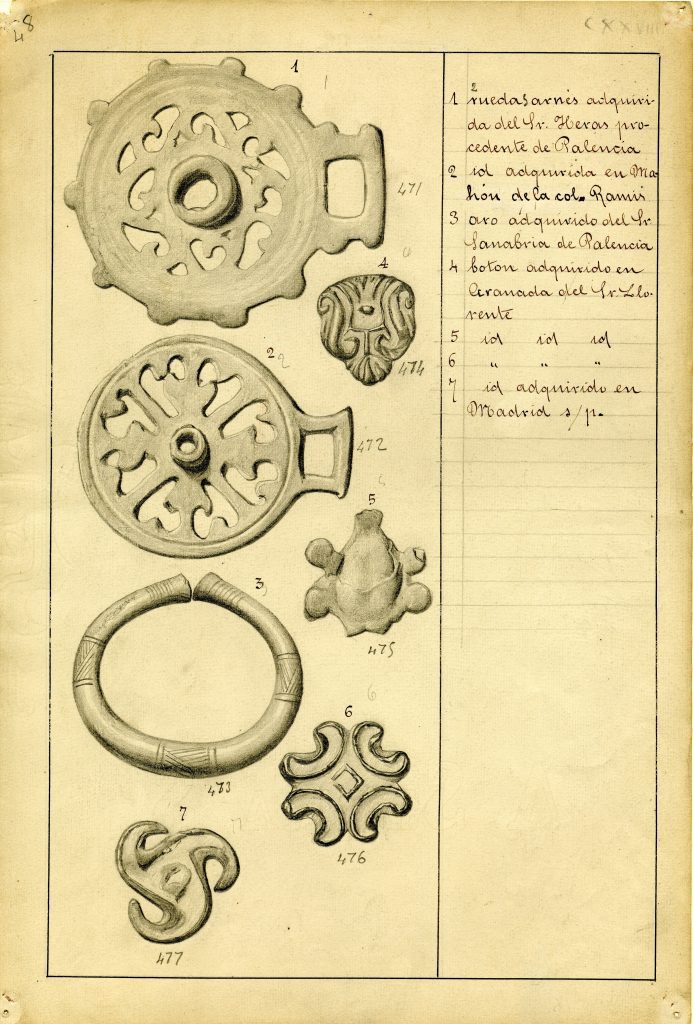 48
CXXVIII
1
1
471
4
474
2
2
472
5
475
3
473
6
6
476
7
477
2
1 ruedas arnés adquiri-
da del Sr. Heras pro-
cedente de Palencia
2 id adquirida en Ma-
hón de la col. Ramis
3 aro adquirido del Sr
Sanabria de Palencia
4 boton adquirido en
Granada del Sr. Llo-
rente
5 id id id
6 " " "
7 id adquirido en
Madrid s/p.